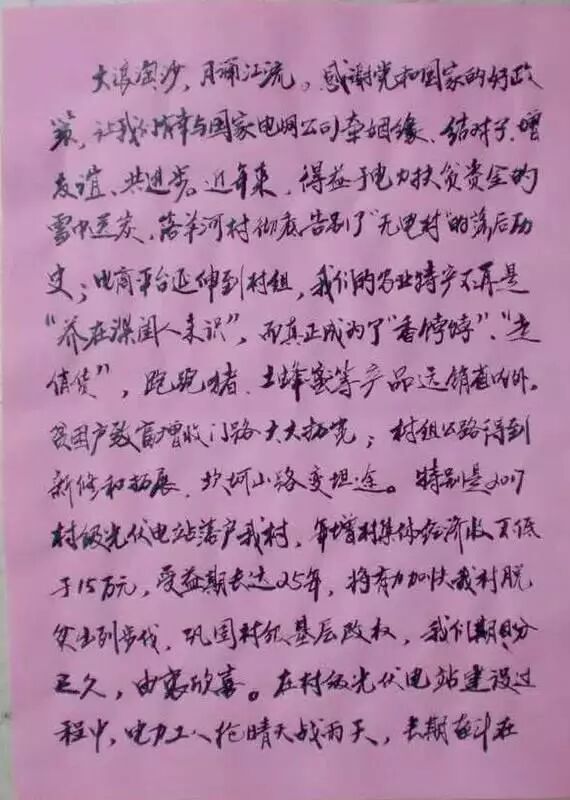 大浪淘沙，月涌江流。感谢党和国家的好政
策，让我们城幸与国家电网公司牵姻缘、结对子、增
友谊、共进步。近年来，得益于电力扶贫资金的
雪中送炭，羊河村彻底告别了"无电村"的落后历
史；电商平台延伸到村组，我们的农业特产不再是
"养在深闺人未识"，而真正成为了"香饽饽"、"走
俏货"，跑跑猪、土蜂蜜等产品远销省内外。
贫困户致富增收门路大大拓宽；村组公路得到
新修和拓展，坎坷小路变坦途。特别是2017
村级光伏电站落户我村，年增村集体经济收入不低
于15万元，受益期长达25年，将有力加快我村脱
贫出列步伐，巩固村级基层政权，我们期盼
已久，由衷欣喜。在村级光伏电站建设过
程中，电力工人抢晴天战雨天，长期奋斗在